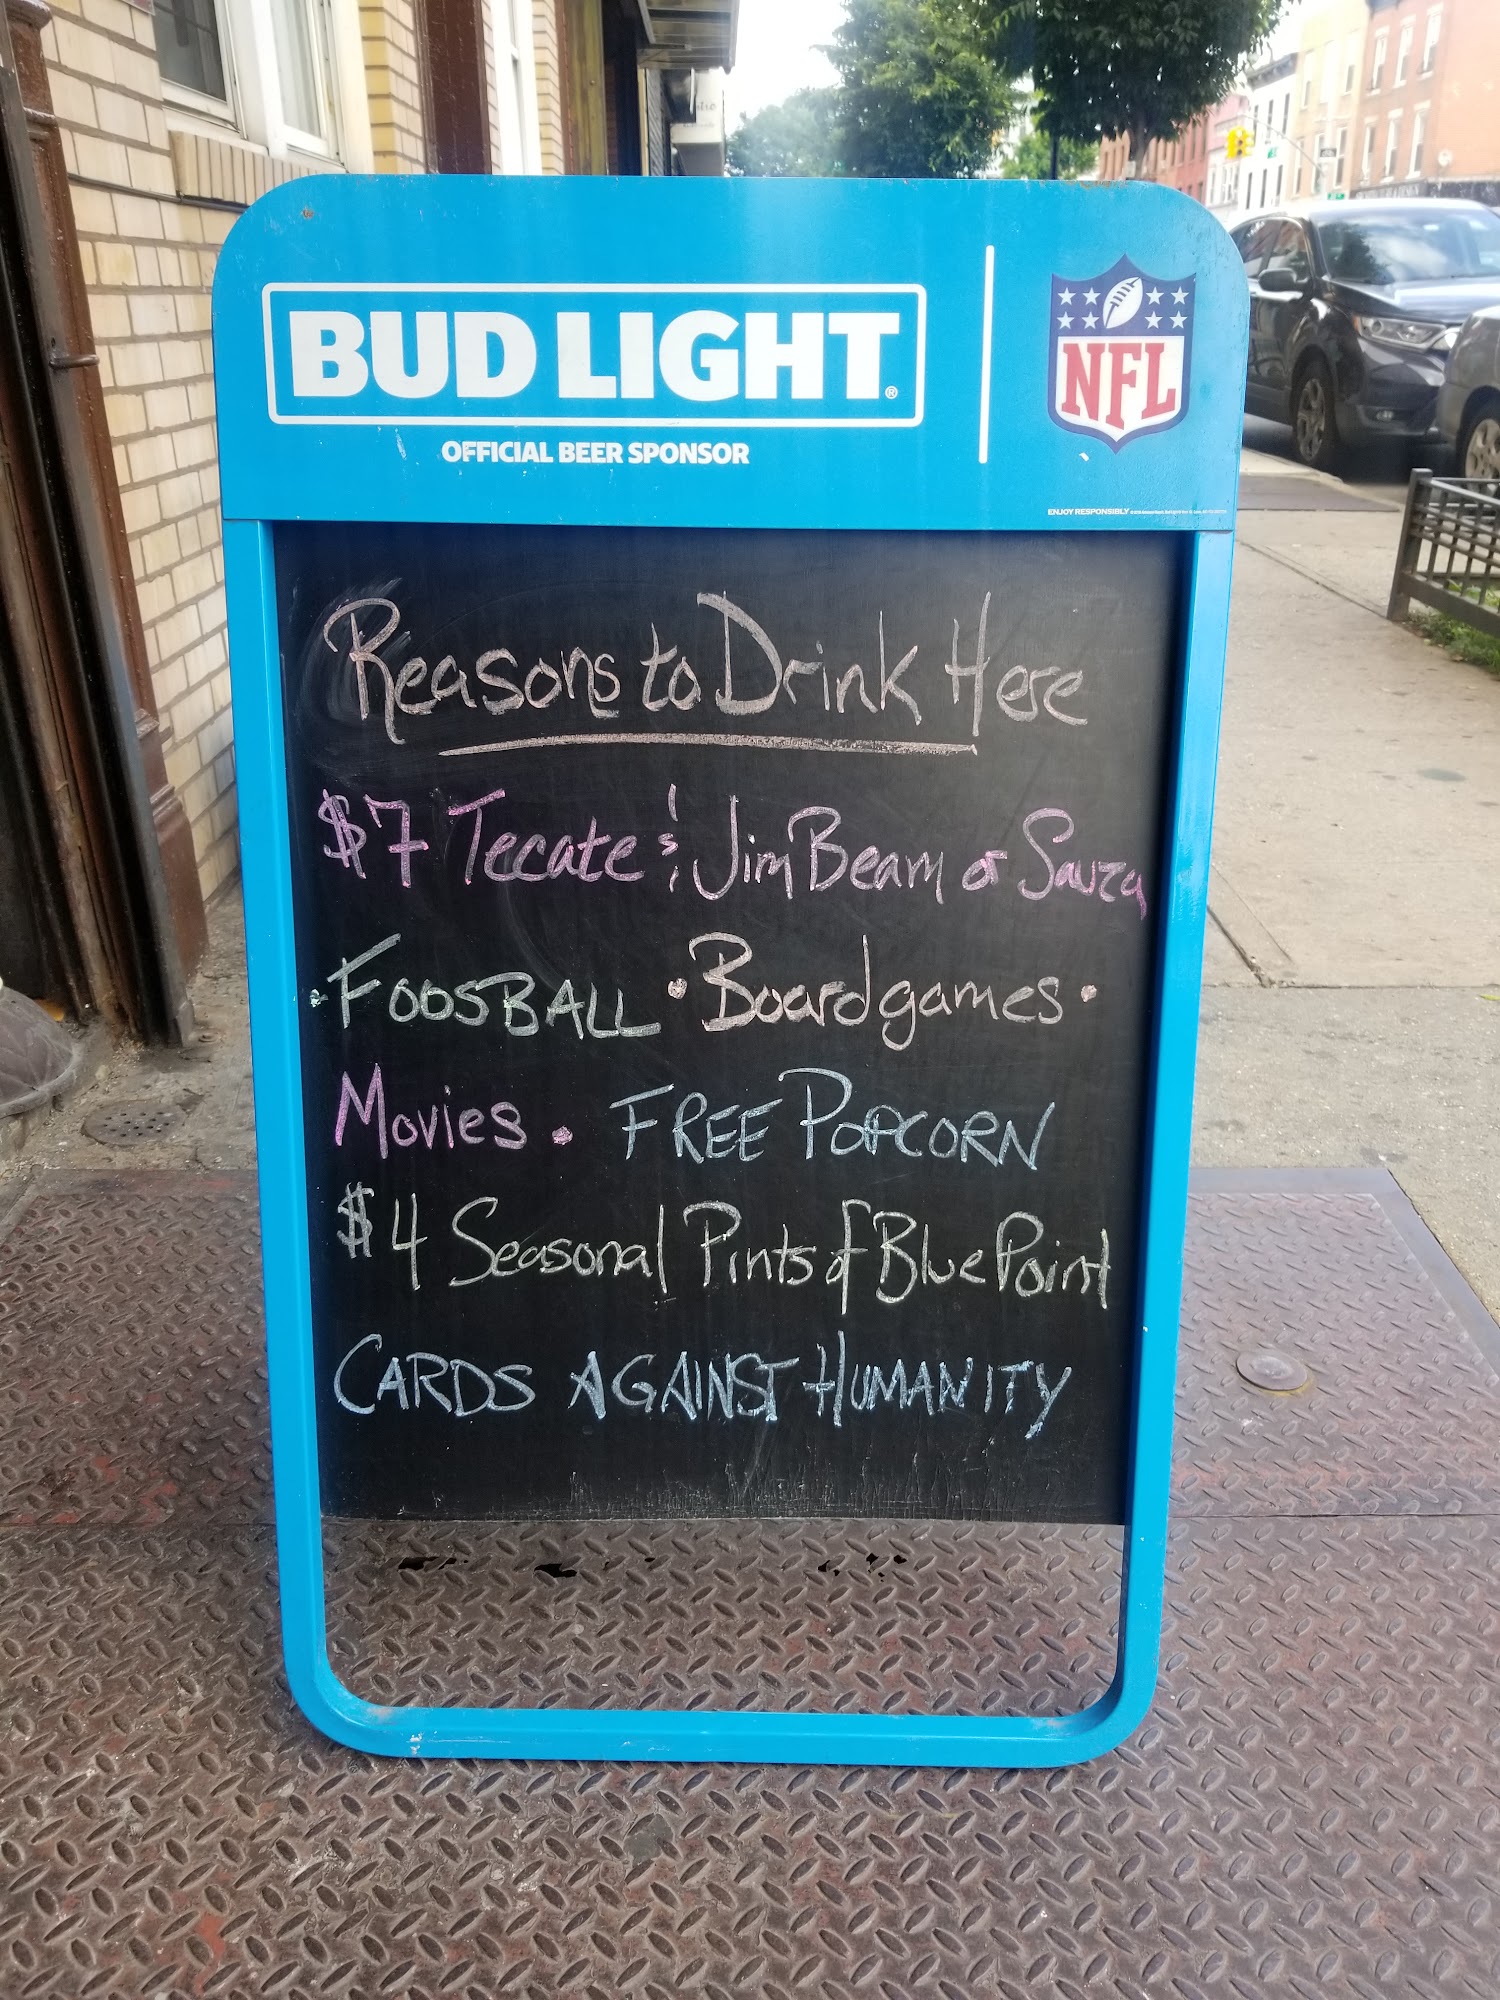 BUD LIGHT®
OFFICIAL BEER SPONSOR
NFL
ENJOY RESPONSIBLY
Reasons to Drink Here
$7 Tecate & Jim Beam or Sauza
• FOOSBALL • Boardgames •
Movies • FREE POPCORN
$4 Seasonal Pints of Blue Point
CARDS AGAINST HUMANITY